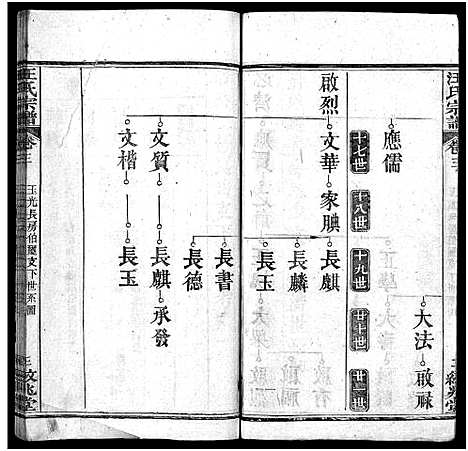 汪氏宗譜
卷三
大法 啟祿
應儒
十七世 十八世 十九世 廿十世
啟烈 文華 家腆 長麒
長麟
長玉
長書
長德
文質 長麒 承發
文楷 長玉
汪氏宗譜
卷三
玉光長房伯
支下世系圖
敘兆堂